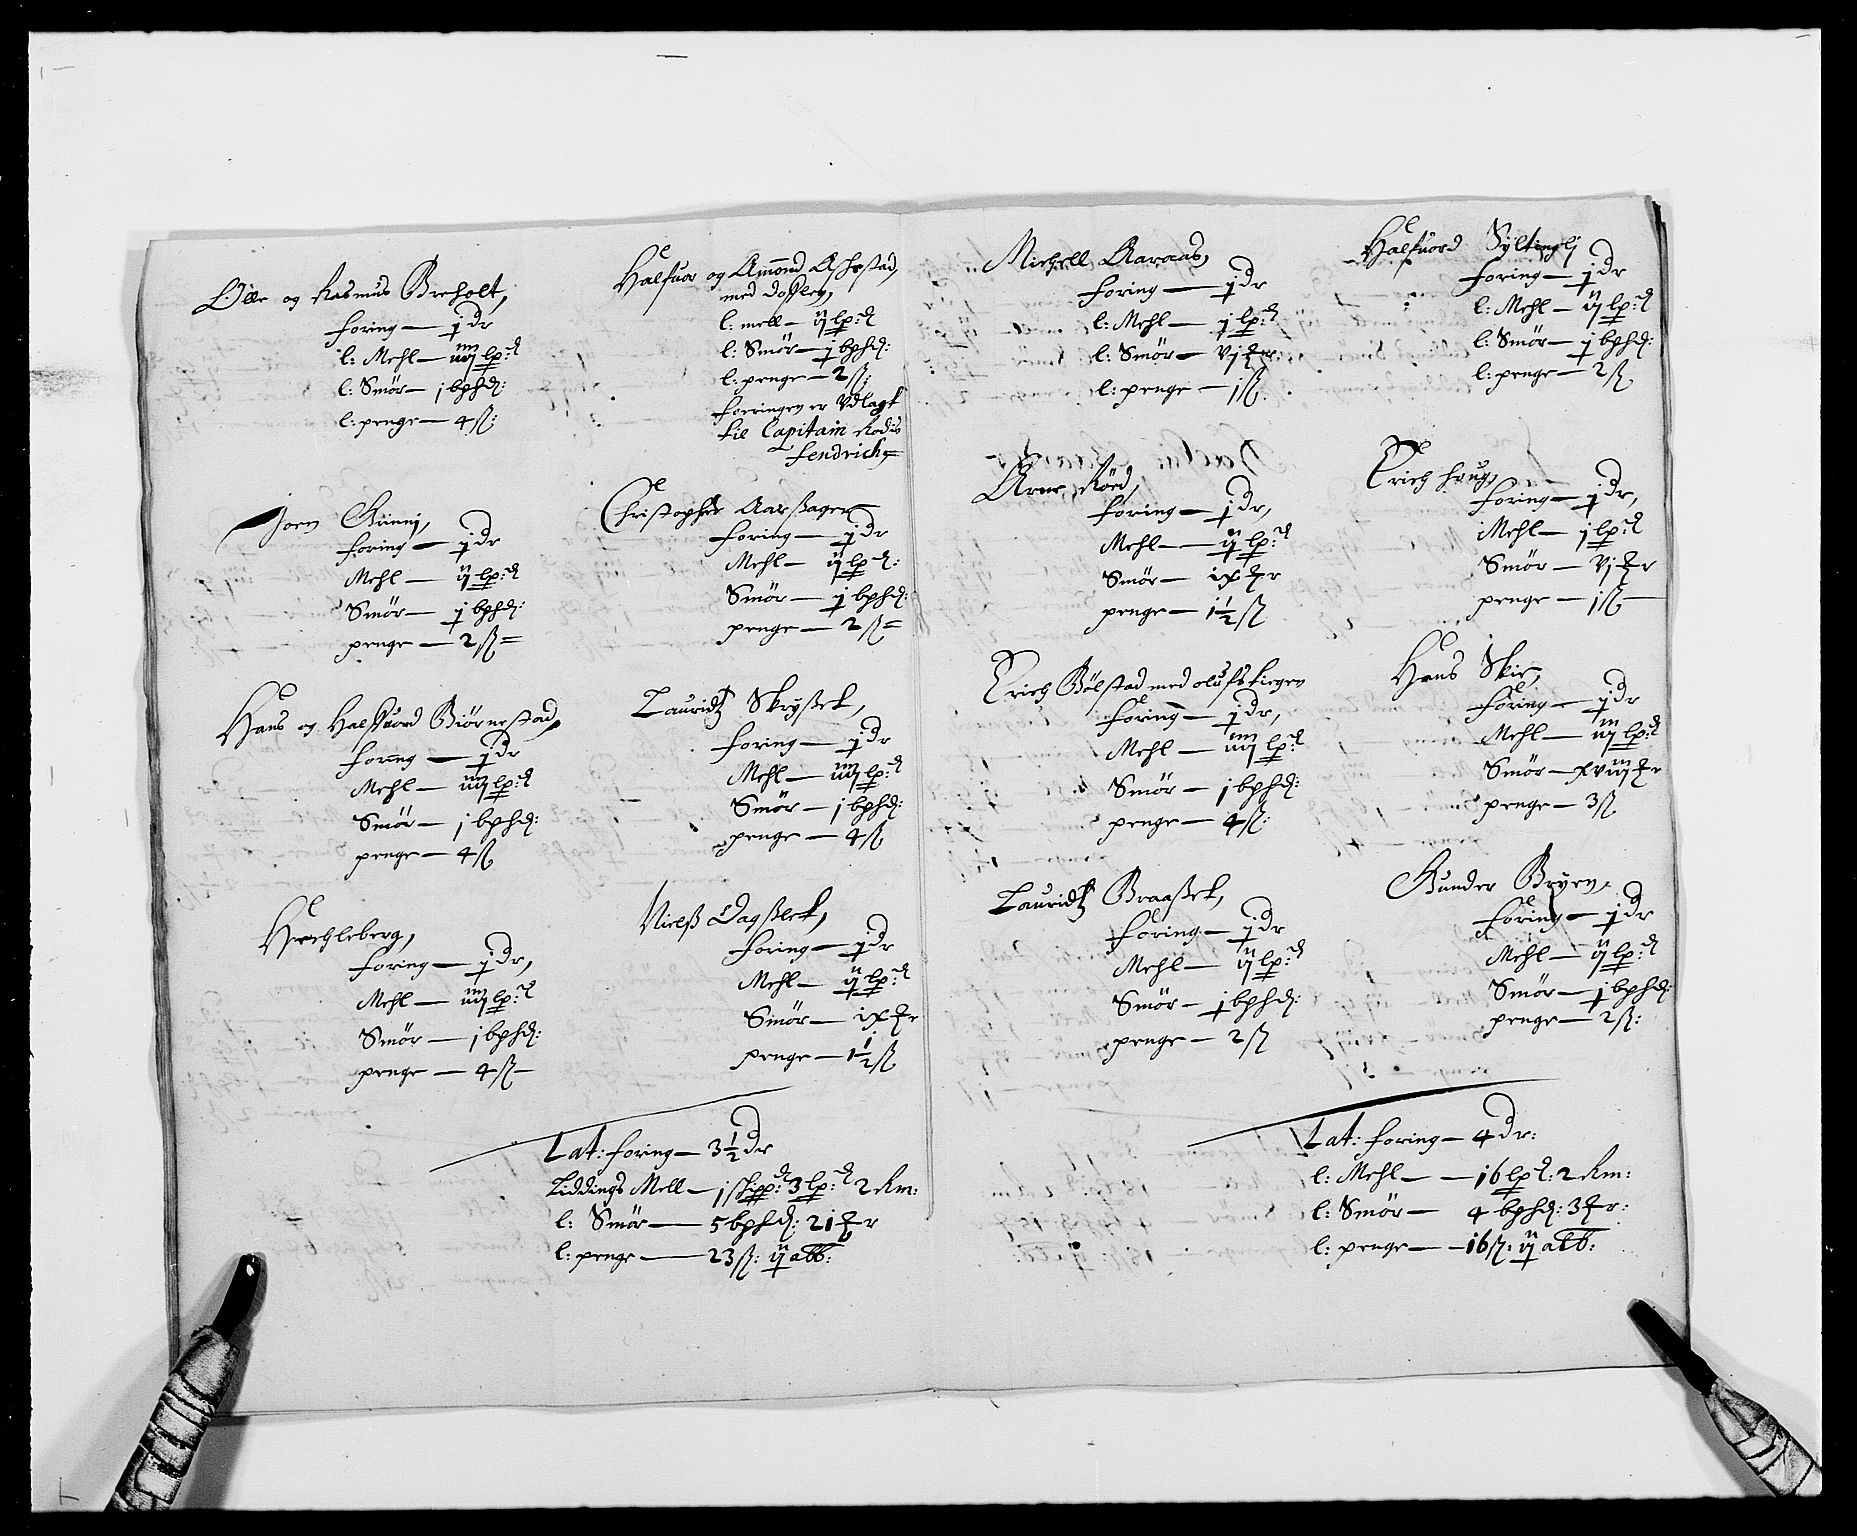 Olle og Rasmus Breholt,
foring — j dr
l: Mehl — iiij lp:d
l: Smör — j bphd:
l: penge — 4 ß:
Joen Gunnj,
foring — j dr
Mehl — ij lp:d
Smör — j bphd:
penge — 2 ß
Hans og Halfuord Biörnestad,
foring — j dr
Mehl — iiij lp:d
Smör — j bphd:
penge — 4 ß
foring — j dr,
Mehl — iiij lp:d
Smör — j bphd:
penge — 4 ß
Halfuor og Amond
med
l: mell — ij lp:d
l: Smör — j bphd:
l: penge — 2 ß:
foeringen er Vdlagt
til Capitain Rodis
fendrich
Christopher Aarßagen
foring — j dr
Mehl — ij lp:d:
Smör — j bphd:
penge — 2 ß
Lauridtz Skryßet,
foring — j dr
Mehl — iiij lp:d
Smör — j bphd:
penge — 4 ß
Nielß Dagßlet,
foring — j dr
Mehl — ij lp:d
Smör — ix r
penge — 1½ ß
Lat: foring — 3½ dr
Liddings Mell — j skpp:d 3 lp:d 2 Rm:
l: Smör — 5 bphd: 21 r
l: penge — 23 ß: ij alb:
Michell Aaraas,
foring — j dr
l: Mehl — j lp:d
l: Smör — vj r
l: penge — j ß
Arne Röed,
foring — j dr,
Mehl — ij lp:d
Smör — ix r
penge — 1½ ß
Erich Bölstad med olufskiegen
foring — j dr,
Mehl — iiij lp:d
Smör — j bphd:
penge — 4 ß:
Lauridtz Braaßet,
foring — j dr
Mehl — ij lp:d
Smör — j bphd:
penge — 2 ß
Halfuord Syltinglj
foring — j dr
l: Mehl — ij lp:d
l: Smör — j bphd:
l: penge — 2 ß
Erich houg,
foring — j dr,
Mehl — j lp:d
Smör — vj r
penge — j ß
Hans Skie,
foring — j dr
Mehl — iij lp:d
Smör — xviij r
penge — 3 ß
Gunder Bryen
foring — j dr
Mehl — ij lp:d
Smör — j bphd:
penge — 2 ß:
Lat: foring — 4 dr:
l: Mehl — 16 lp:d: 2 Rm:
l: Smör — 4 bphd: 3 r:
l: penge — 16 ß: ij alb: